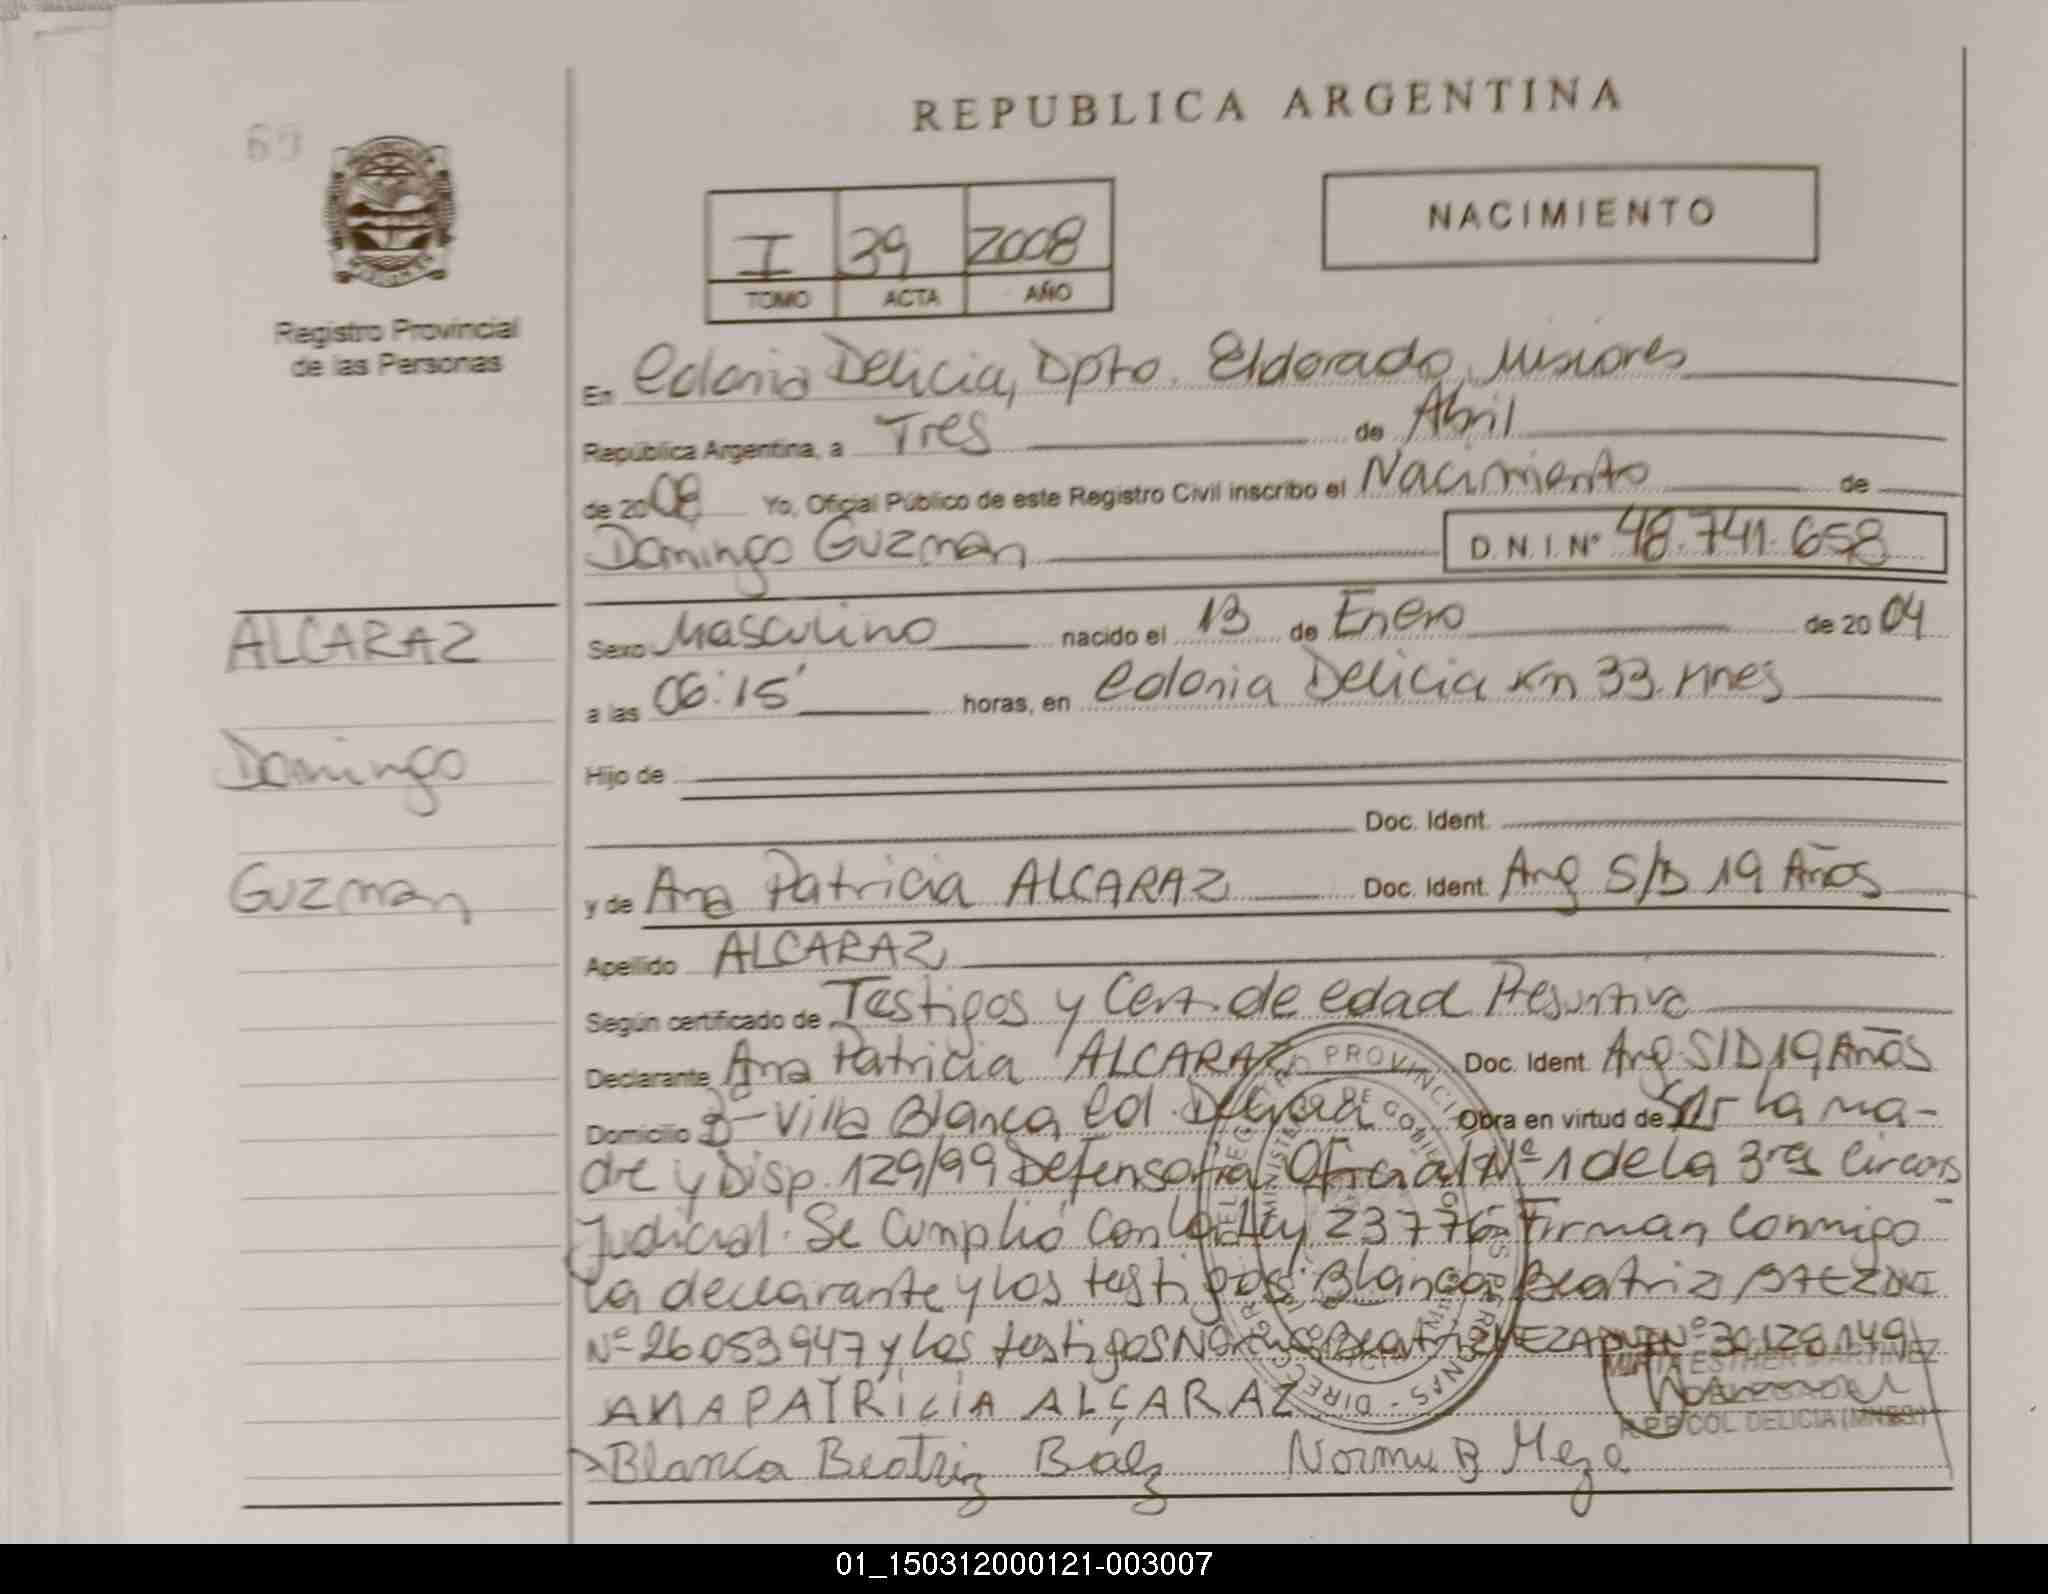 69
REPUBLICA ARGENTINA
NACIMIENTO
I 39 2008
TOMO ACTA AÑO
Registro Provincial
de las Personas
En Colonia Delicia, Dpto. Eldorado, Misiones
República Argentina, a Tres de Abril
de 2008 Yo, Oficial Público de este Registro Civil inscribo el Nacimiento de
Domingo Guzman D.N.I. Nº 48.741.658
ALCARAZ
Domingo
Guzman
Sexo Masculino nacido el 13 de Enero de 2004
a las 06:15' horas, en Colonia Delicia Km 33. Mnes
Hijo de
Doc. Ident.
y de Ana Patricia ALCARAZ Doc. Ident. Arg S/D 19 Años
Apellido ALCARAZ
Según certificado de Testigos y Cert. de edad Presuntiva
Declarante Ana Patricia ALCARAZ Doc. Ident. Arg S/D 19 Años
Domicilio Bº Villa Blanca Col. Delicia Obra en virtud de Ser la ma-
dre y Disp. 129/99 Defensoria Oficial Nº 1 de la 3ra Circuns
Judicial. Se Cumplió con la Ley 23776 Firman conmigo
la declarante y los testigos: Blanca Beatriz BAEZ DNI
Nº 26053947 y los testigos Norma Beatriz MEZA DNI Nº 30128149
MIRTA ESTHER MARTINEZ
ANA PATRICIA ALCARAZ
COL DELICIA (MNES.)
Blanca Beatriz Báez Norma B Meza
01_150312000121-003007